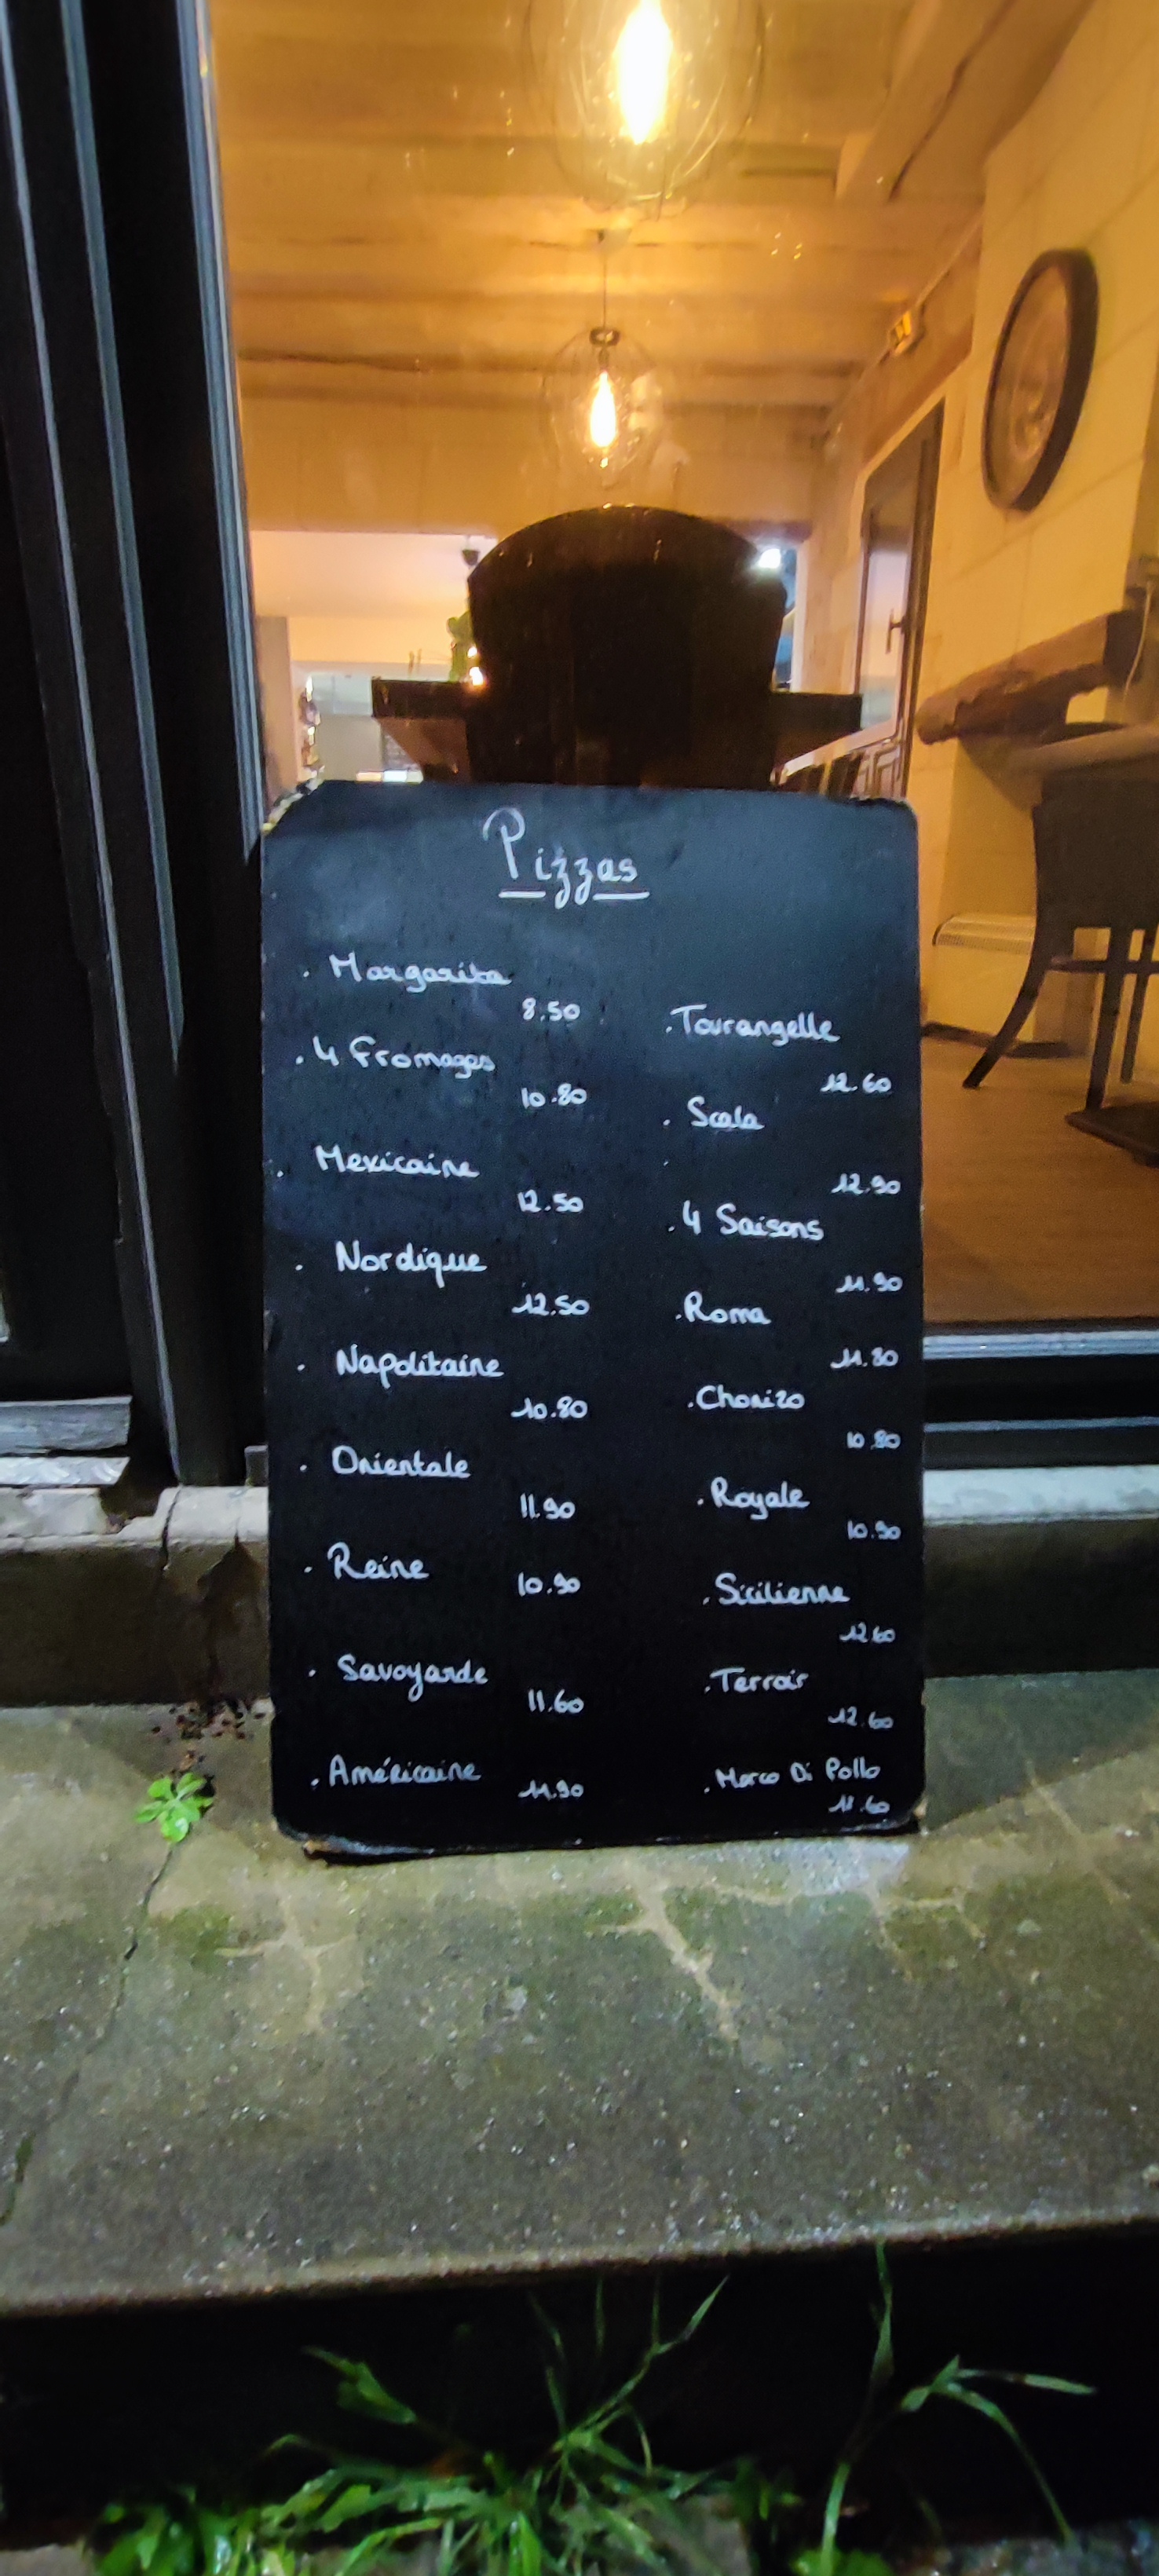 Pizzas
. Margarita
8.50
. 4 Fromages
10.80
. Mexicaine
12.50
. Nordique
12.50
. Napolitaine
10.80
. Orientale
11.90
. Reine
10.90
. Savoyarde
11.60
. Américaine
11.90
. Tourangelle
12.60
. Scala
12.90
. 4 Saisons
11.90
. Roma
11.80
. Chorizo
10.80
. Royale
10.90
. Sicilienne
12.60
. Terroir
12.60
. Marco Di Pollo
11.60